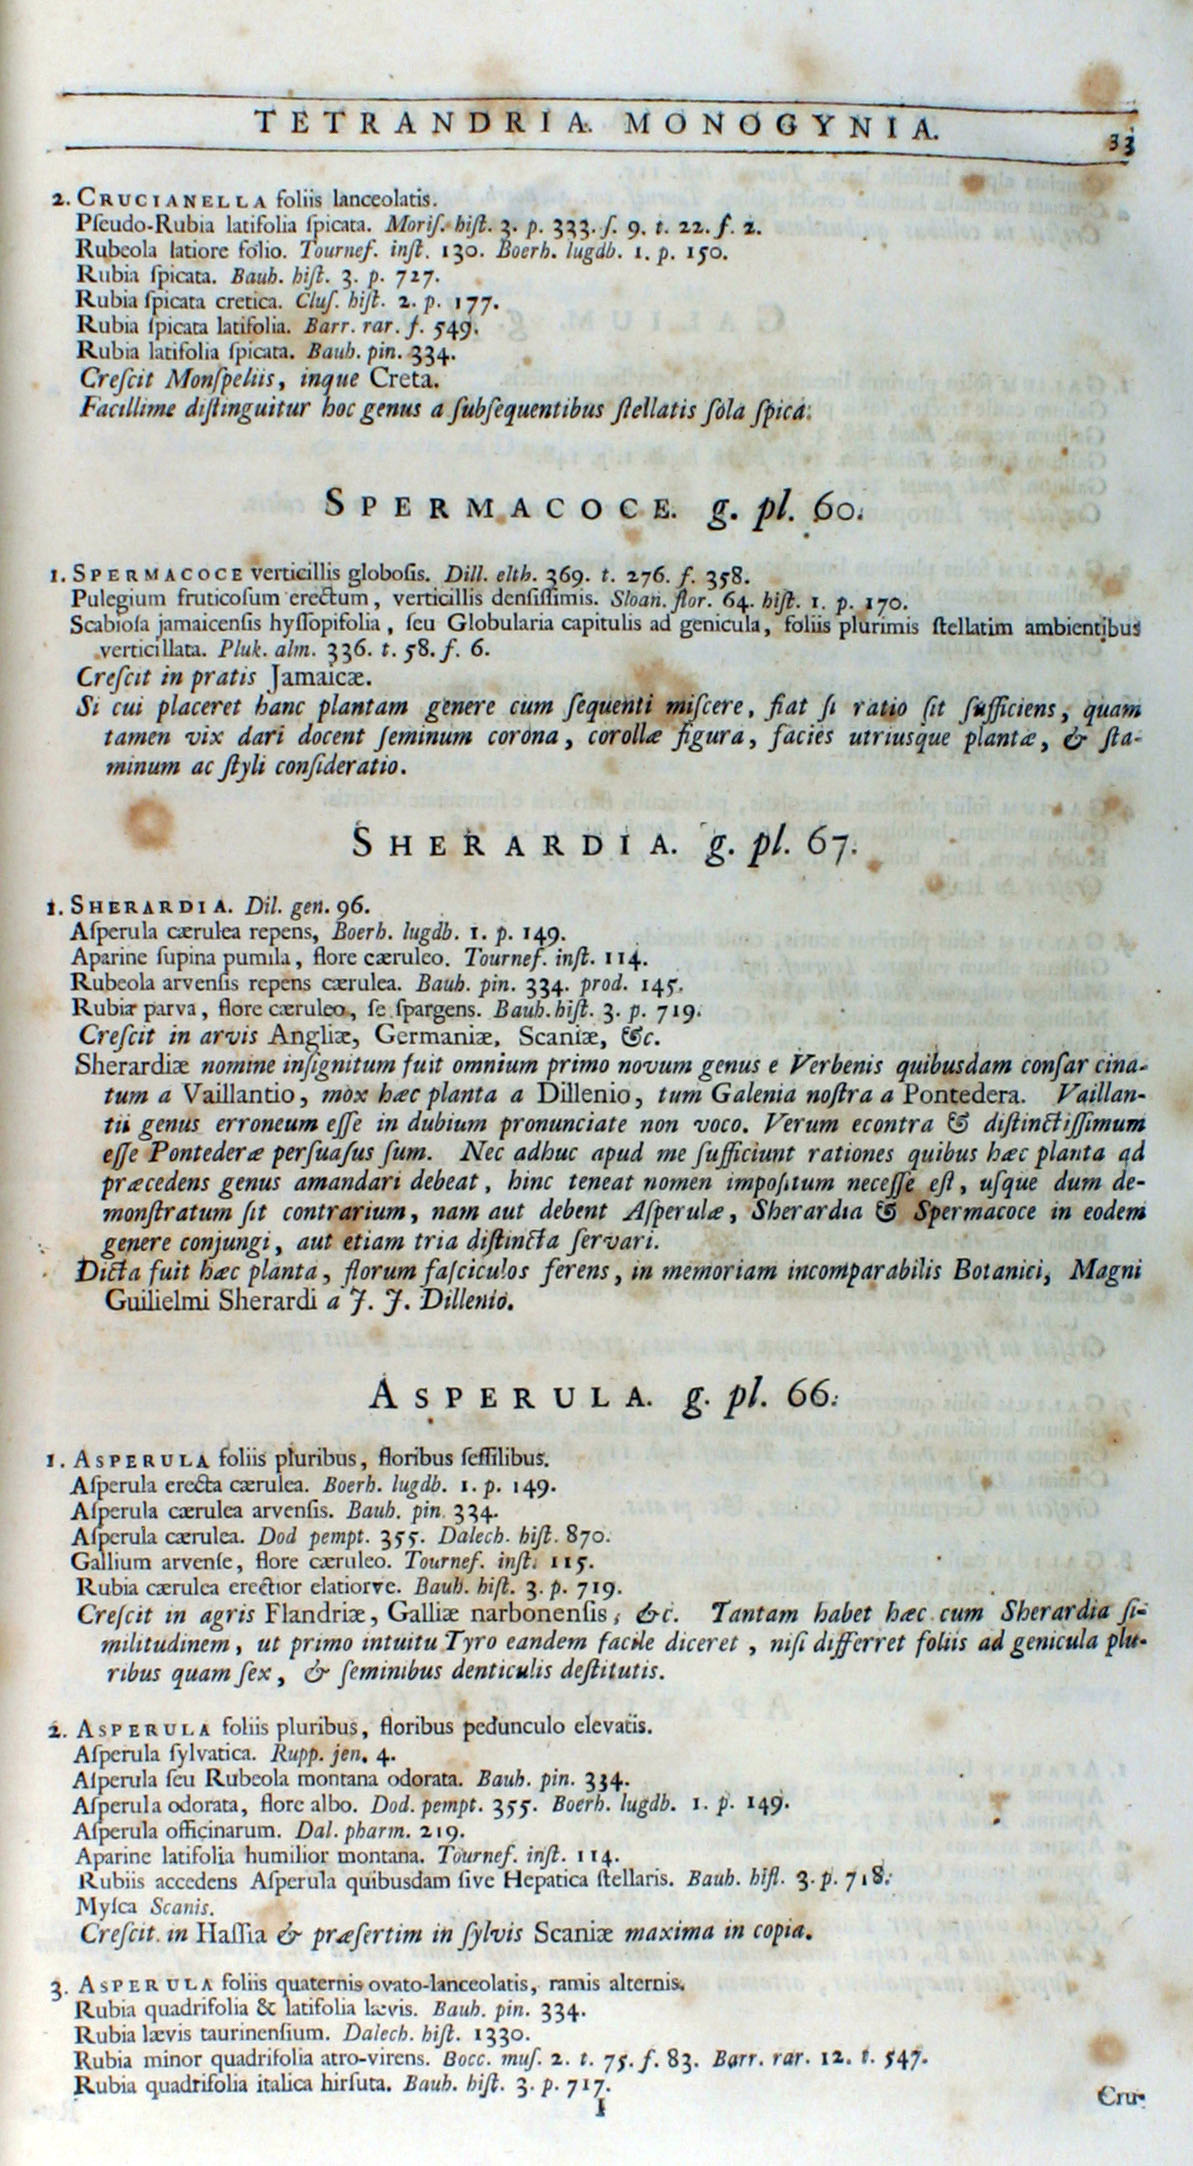 TETRANDRIA. MONOGYNIA. 33
2. CRUCIANELLA foliis lanceolatis.
Pſeudo-Rubia latifolia ſpicata. Moriſ. hiſt. 3. p. 333. ſ. 9. t. 22. f. 2.
Rubeola latiore folio. Tournef. inſt. 130. Boerh. lugdb. 1. p. 150.
Rubia ſpicata. Bauh. hiſt. 3. p. 727.
Rubia ſpicata cretica. Cluſ. hiſt. 2. p. 177.
Rubia ſpicata latifolia. Barr. rar. f. 549.
Rubia latifolia ſpicata. Bauh. pin. 334.
Creſcit Monſpeliis, inque Creta.
Facillime diſtinguitur hoc genus a ſubſequentibus ſtellatis ſola ſpica.
SPERMACOCE. g. pl. 60.
1. SPERMACOCE verticillis globoſis. Dill. elth. 369. t. 276. f. 358.
Pulegium fruticoſum erectum, verticillis denſiſſimis. Sloan. flor. 64. hiſt. 1. p. 170.
Scabioſa jamaicenſis hyſſopifolia, ſeu Globularia capitulis ad genicula, foliis plurimis ſtellatim ambientibus
verticillata. Pluk. alm. 336. t. 58. f. 6.
Creſcit in pratis Jamaicæ.
Si cui placeret hanc plantam genere cum ſequenti miſcere, fiat ſi ratio ſit ſufficiens, quam
tamen vix dari docent ſeminum corona, corollæ figura, facies utriusque plantæ, & ſta-
minum ac ſtyli conſideratio.
SHERARDIA. g. pl. 67.
1. SHERARDIA. Dil. gen. 96.
Aſperula cærulea repens, Boerh. lugdb. 1. p. 149.
Aparine ſupina pumila, flore cæruleo. Tournef. inſt. 114.
Rubeola arvenſis repens cærulea. Bauh. pin. 334. prod. 145.
Rubia parva, flore cæruleo, ſe ſpargens. Bauh. hiſt. 3. p. 719.
Creſcit in arvis Angliæ, Germaniæ, Scaniæ, &c.
Sherardiæ nomine inſignitum fuit omnium primo novum genus e Verbenis quibusdam conſarcina-
tum a Vaillantio, mox hæc planta a Dillenio, tum Galenia noſtra a Pontedera. Vaillan-
tii genus erroneum eſſe in dubium pronunciate non voco. Verum econtra & diſtinctiſſimum
eſſe Pontederæ perſuaſus ſum. Nec adhuc apud me ſufficiunt rationes quibus hæc planta ad
præcedens genus amandari debeat, hinc teneat nomen impoſitum neceſſe eſt, uſque dum de-
monſtratum ſit contrarium, nam aut debent Aſperulæ, Sherardia & Spermacoce in eodem
genere conjungi, aut etiam tria diſtincta ſervari.
Dicta fuit hæc planta, florum faſciculos ferens, in memoriam incomparabilis Botanici, Magni
Guilielmi Sherardi a J. J. Dillenio.
ASPERULA. g. pl. 66.
1. ASPERULA foliis pluribus, floribus ſeſſilibus.
Aſperula erecta cærulea. Boerh. lugdb. 1. p. 149.
Aſperula cærulea arvenſis. Bauh. pin. 334.
Aſperula cærulea. Dod pempt. 355. Dalech. hiſt. 870.
Gallium arvenſe, flore cæruleo. Tournef. inſt. 115.
Rubia cærulea erectior elatiorve. Bauh. hiſt. 3. p. 719.
Creſcit in agris Flandriæ, Galliæ narbonenſis, &c. Tantam habet hæc cum Sherardia ſi-
militudinem, ut primo intuitu Tyro eandem facile diceret, niſi differret foliis ad genicula plu-
ribus quam ſex, & ſeminibus denticulis deſtitutis.
2. ASPERULA foliis pluribus, floribus pedunculo elevatis.
Aſperula ſylvatica. Rupp. jen. 4.
Aſperula ſeu Rubeola montana odorata. Bauh. pin. 334.
Aſperula odorata, flore albo. Dod. pempt. 355. Boerh. lugdb. 1. p. 149.
Aſperula officinarum. Dal. pharm. 219.
Aparine latifolia humilior montana. Tournef. inſt. 114.
Rubiis accedens Aſperula quibusdam ſive Hepatica ſtellaris. Bauh. hiſt. 3. p. 718.
Myſca Scanis.
Creſcit in Haſſia & præſertim in ſylvis Scaniæ maxima in copia.
3. ASPERULA foliis quaternis ovato-lanceolatis, ramis alternis.
Rubia quadrifolia & latifolia lævis. Bauh. pin. 334.
Rubia lævis taurinenſium. Dalech. hiſt. 1330.
Rubia minor quadrifolia atro-virens. Bocc. muſ. 2. t. 75. f. 83. Barr. rar. 12. t. 547.
Rubia quadrifolia italica hirſuta. Bauh. hiſt. 3. p. 717.
I Cru-